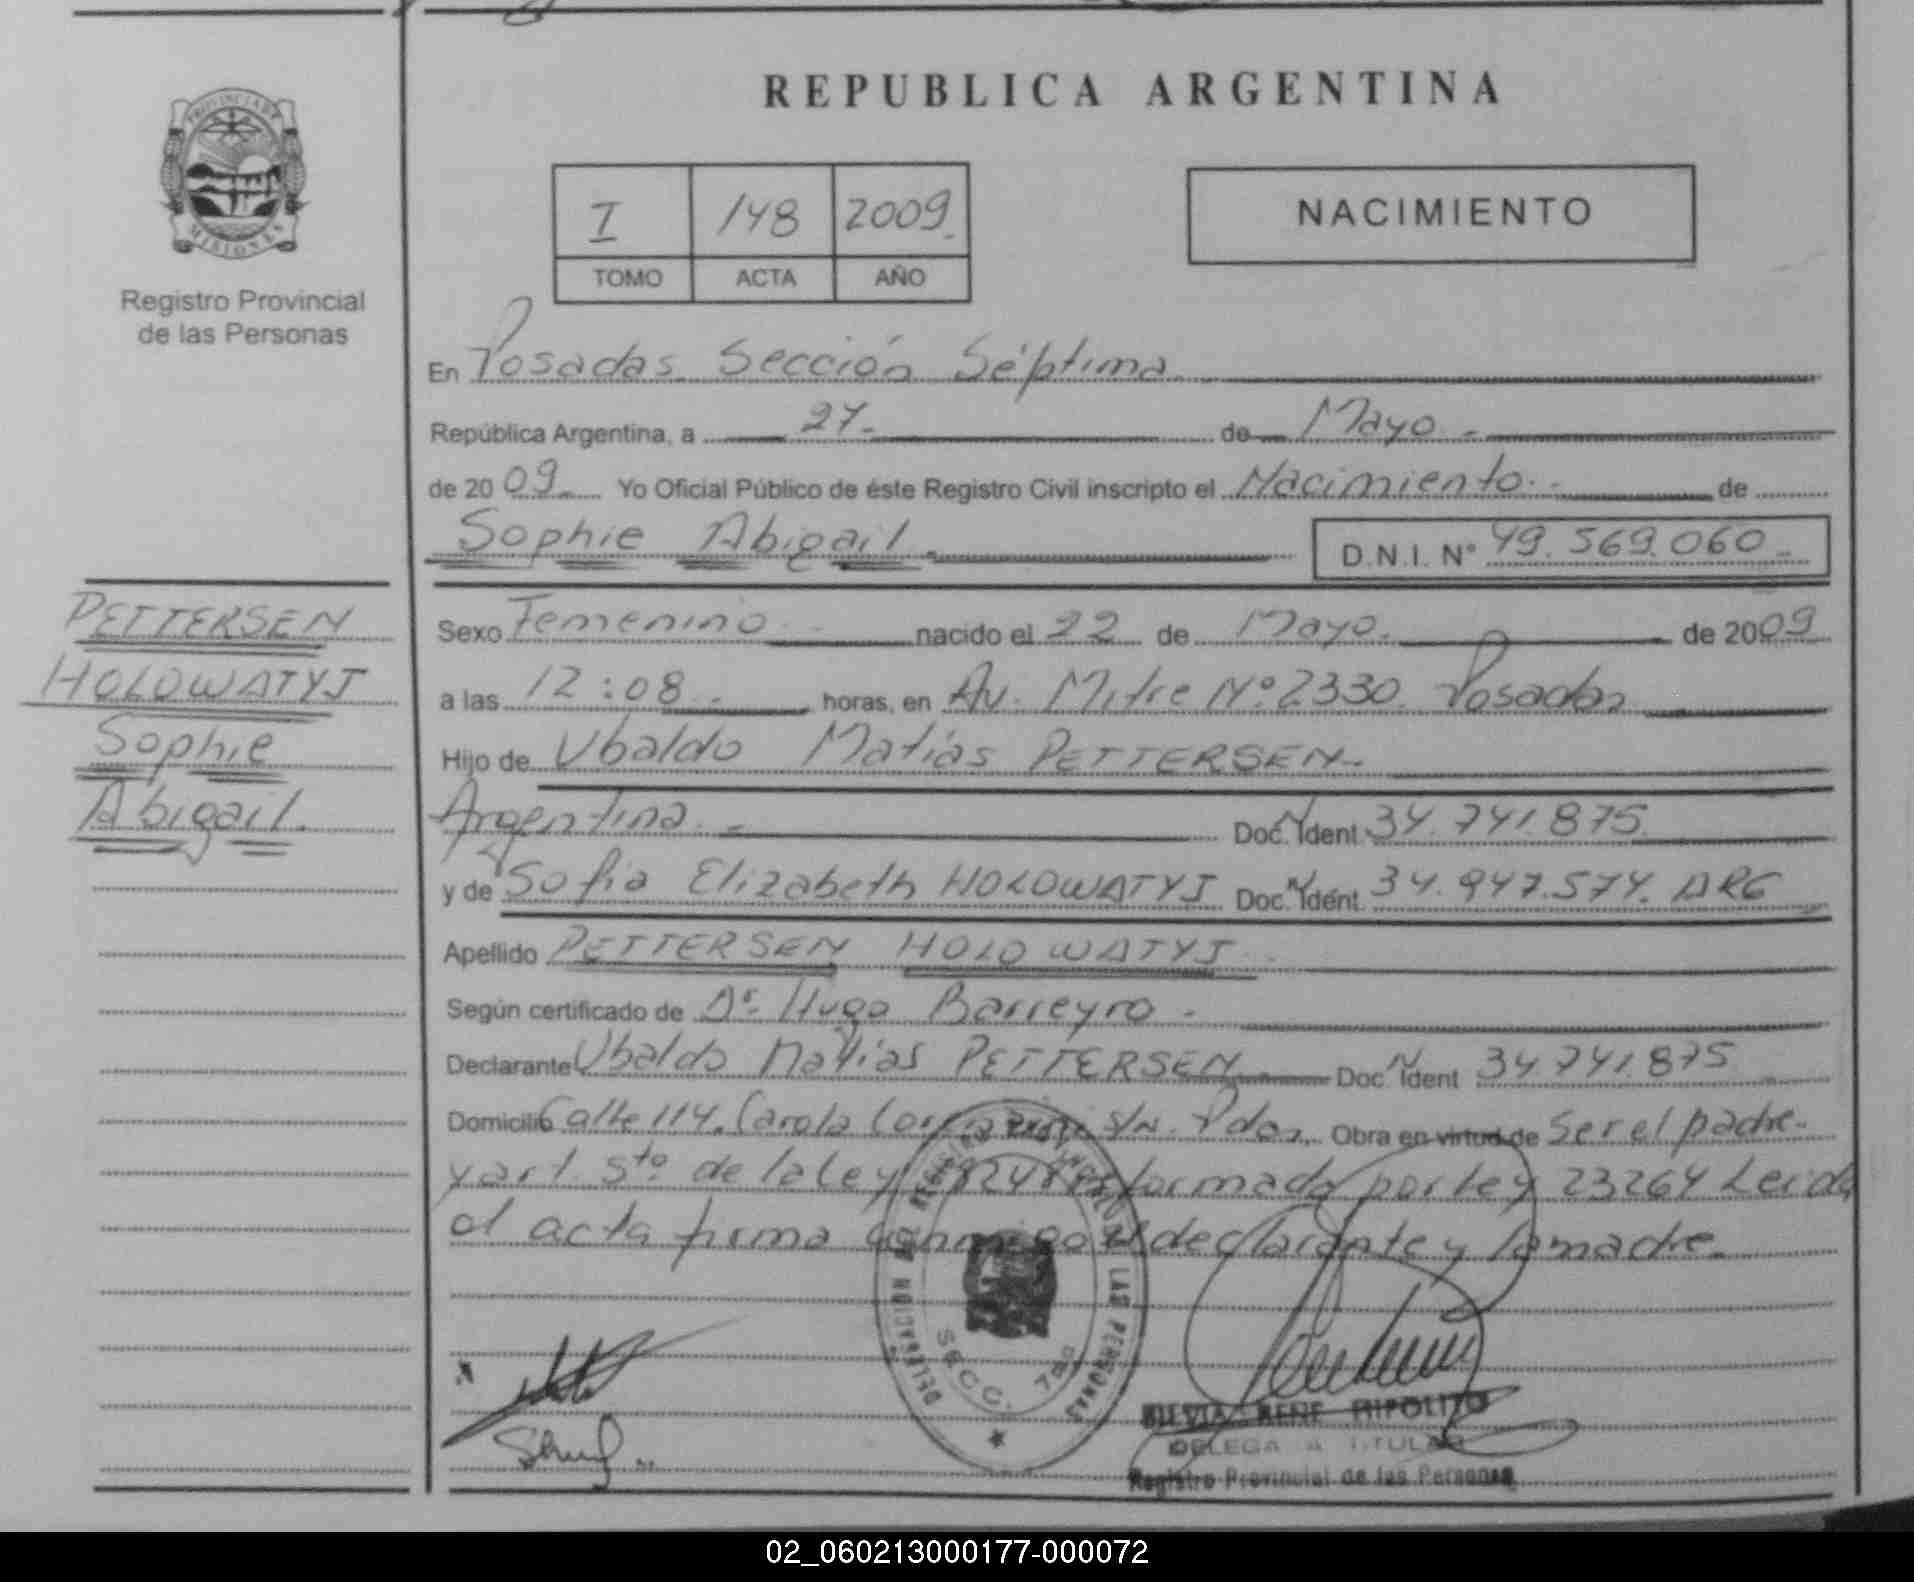 REPUBLICA ARGENTINA
PROVINCIA DE
MISIONES
Registro Provincial
de las Personas
I 148 2009
TOMO ACTA AÑO
NACIMIENTO
En Posadas Sección Séptima
República Argentina, a 27 de Mayo
de 2009 Yo Oficial Público de éste Registro Civil inscripto el Nacimiento de
Sophie Abigail D.N.I. N° 49.569.060
PETTERSEN
HOLOWATYJ
Sophie
Abigail.
Sexo Femenino nacido el 22 de Mayo. de 2009
a las 12:08 horas, en Av. Mitre N° 2330. Posadas
Hijo de Ubaldo Matías PETTERSEN
Argentina. Doc. N Ident 34.741.875
y de Sofia Elizabeth HOLOWATYJ Doc. N Ident. 34.947.574. ARG
Apellido PETTERSEN HOLOWATYJ
Según certificado de Dr. Hugo Barreyro
Declarante Ubaldo Matías PETTERSEN Doc. N Ident 34.741.875
Domicilio Calle 114. Carola s/n. Pdas. Obra en virtud de Ser el padre
y art. 5to de la Ley 18248 reformada por Ley 23264 Leida
el acta firma conmigo el declarante y la madre.
DELEGACION DEL REGISTRO PROVINCIAL DE LAS PERSONAS
SECC. 7ma
SILVIA RENE HIPOLITO
DELEGADA TITULAR
Registro Provincial de las Personas
02_060213000177-000072